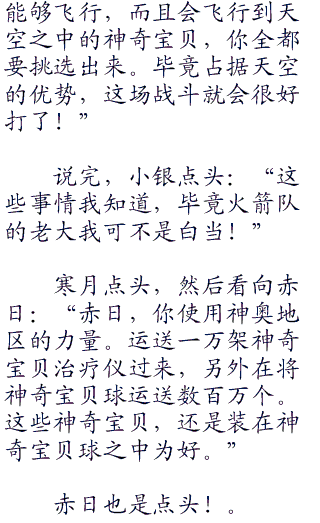 能够飞行，而且会飞行到天
空之中的神奇宝贝，你全都
要挑选出来。毕竟占据天空
的优势，这场战斗就会很好
打了！”
说完，小银点头：“这
些事情我知道，毕竟火箭队
的老大我可不是白当！”
寒月点头，然后看向赤
日：“赤日，你使用神奥地
区的力量。运送一万架神奇
宝贝治疗仪过来，另外在将
神奇宝贝球运送数百万个。
这些神奇宝贝，还是装在神
奇宝贝球之中为好。”
赤日也是点头！。